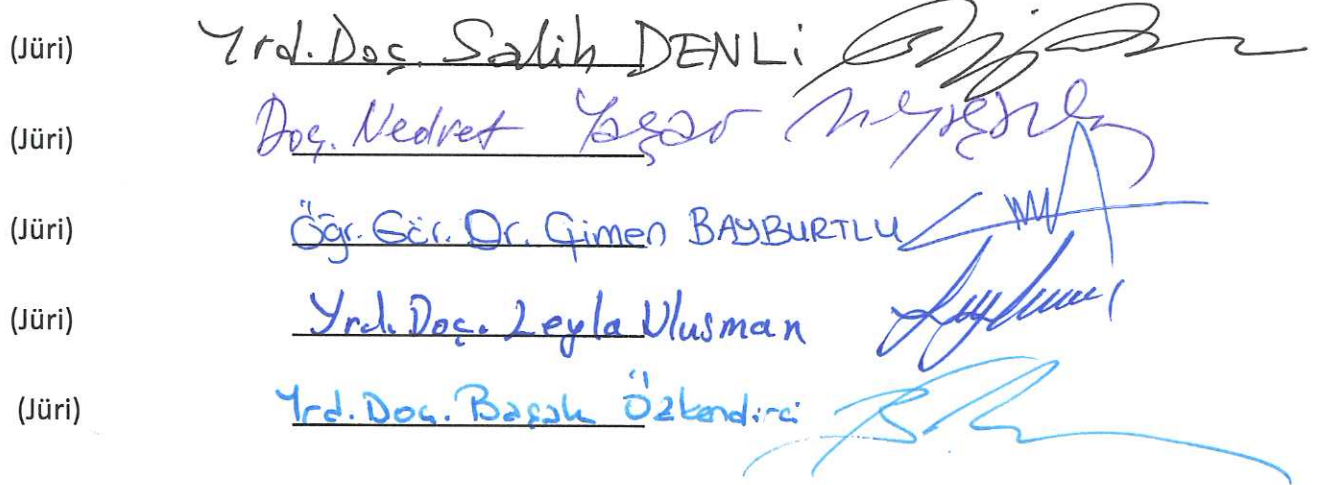 (Jüri) Yrd. Doç. Salih DENLİ
(Jüri) Doç. Nedret Yaşar
(Jüri) Öğr. Gör. Dr. Çimen BAYBURTLU
(Jüri) Yrd. Doç. Leyla Ulusman
(Jüri) Yrd. Doç. Başak Özkendirci